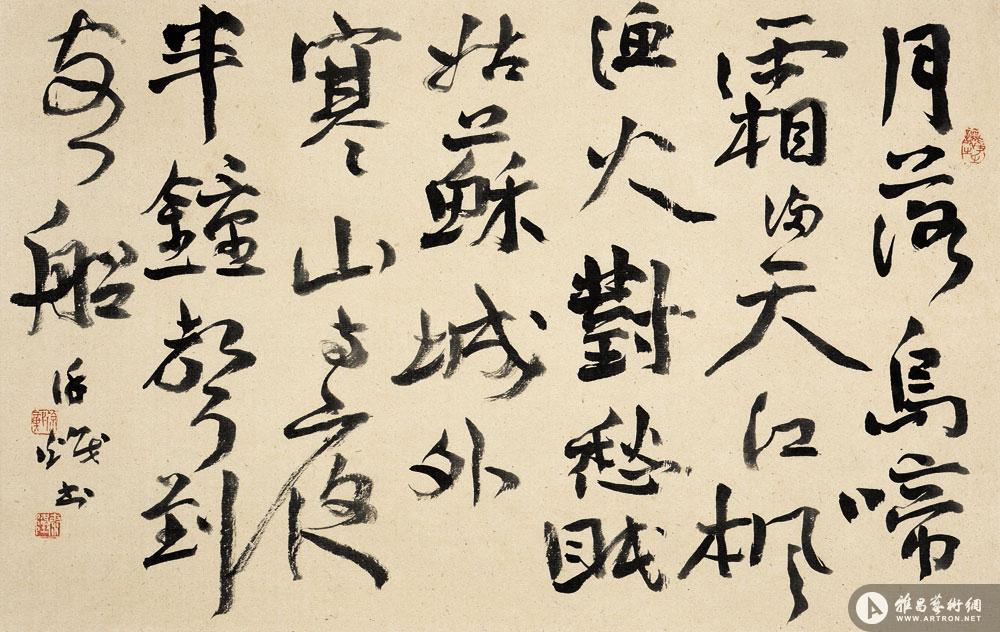 月落烏啼
霜滿天江楓
漁火對愁眠
姑蘇城外
寒山寺夜
半鐘聲到
客船
書
雅昌藝術網
WWW.ARTRON.NET